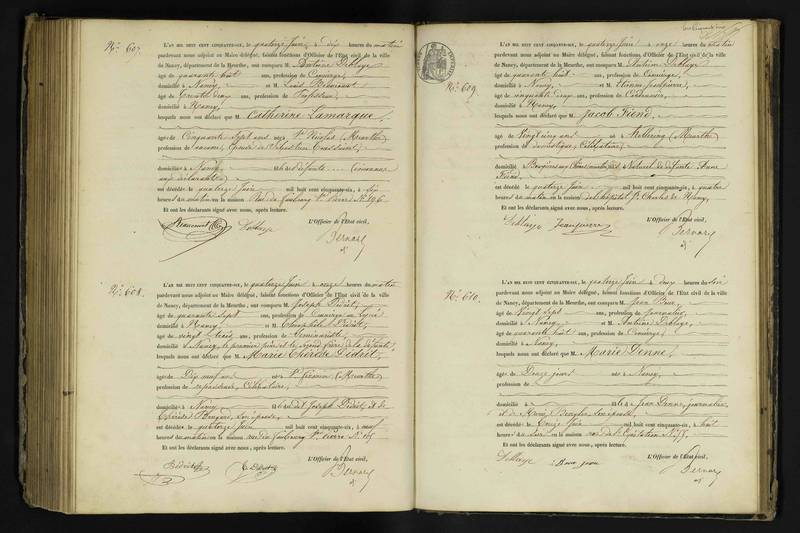 No. 607.
L'AN MIL HUIT CENT CINQUANTE-SIX, le quatorze Juin, à dix heures du matin
pardevant nous adjoint au Maire délégué, faisant fonctions d'Officier de l'Etat civil de la ville
de Nancy, département de la Meurthe, ont comparu M. Antoine Deblaye
âgé de quarante huit ans, profession de Concierge,
domicilié à Nancy, et M. Louis
âgé de ans, profession de Professeur,
domicilié à Nancy,
lesquels nous ont déclaré que M. Catherine Lamarque,
âgé de Cinquante Sept ans né à St. Nicolas (Meurthe)
profession de
domicilié à Nancy
est décédé, le quatorze Juin mil huit cent cinquante-six, à six
heures du matin en la maison Rue du faubourg St. Pierre No. 196
Et ont les déclarants signé avec nous, après lecture.
L'Officier de l'Etat civil,
Deblaye
Bernard
No. 608.
L'AN MIL HUIT CENT CINQUANTE-SIX, le quatorze Juin, à onze heures du matin
pardevant nous adjoint au Maire délégué, faisant fonctions d'Officier de l'Etat civil de la ville
de Nancy, département de la Meurthe, ont comparu M. Joseph Didrit,
âgé de quarante sept ans, profession de
domicilié à Nancy et M. Théophile Didrit,
âgé de vingt trois ans, profession de Séminariste,
domicilié à Nancy, le premier père et le second frère de la défunte
lesquels nous ont déclaré que M. Marie Thérèse Didrit,
âgé de Dix neuf ans né à St. Firmin (Meurthe)
profession de repasseuse, Célibataire,
domicilié à Nancy fille de dit Joseph Didrit, et de
Thérèse son épouse,
est décédé, le quatorze Juin mil huit cent cinquante-six, à neuf
heures du matin en la maison rue du faubourg St. pierre No.
Et ont les déclarants signé avec nous, après lecture.
L'Officier de l'Etat civil,
Didrit
T. Didrit
Bernard
No. 609.
L'AN MIL HUIT CENT CINQUANTE-SIX, le quatorze Juin à onze heures du matin
pardevant nous adjoint au Maire délégué, faisant fonctions d'Officier de l'Etat civil de la ville
de Nancy, département de la Meurthe, ont comparu M. Antoine Deblaye
âgé de quarante huit ans, profession de Concierge,
domicilié à Nancy, et M. Etienne Jeanpierre,
âgé de cinquante ans, profession de Cordonnier,
domicilié à Nancy,
lesquels nous ont déclaré que M. Jacob Fiend,
âgé de Vingt cinq ans né à (Meurthe)
profession de domestique, Célibataire,
domicilié Naturel de défunte Anne
Fiend,
est décédé, le quatorze Juin mil huit cent cinquante-six, à quatre
heures du matin en la maison de l'hôpital St. Charles de Nancy,
Et ont les déclarants signé avec nous, après lecture.
L'Officier de l'Etat civil,
Deblaye
Jeanpierre
Bernard
No. 610.
L'AN MIL HUIT CENT CINQUANTE-SIX, le quatorze Juin à deux heures du soir
pardevant nous adjoint au Maire délégué, faisant fonctions d'Officier de l'Etat civil de la ville
de Nancy, département de la Meurthe, ont comparu M. Jean
âgé de Vingt Sept ans, profession de Journalier,
domicilié à Nancy et M. Antoine Deblaye,
âgé de quarante huit ans, profession de Concierge,
domicilié à Nancy,
lesquels nous ont déclaré que M. Marie Denne,
âgé de Douze jours né à Nancy,
profession de
domicilié à fille de Jean Denne, journalier
et de Marie son épouse,
est décédé, le Treize Juin mil huit cent cinquante-six, à huit
heures du soir en la maison rue de l'Equitation No.
Et ont les déclarants signé avec nous, après lecture.
L'Officier de l'Etat civil,
Deblaye
Bernard